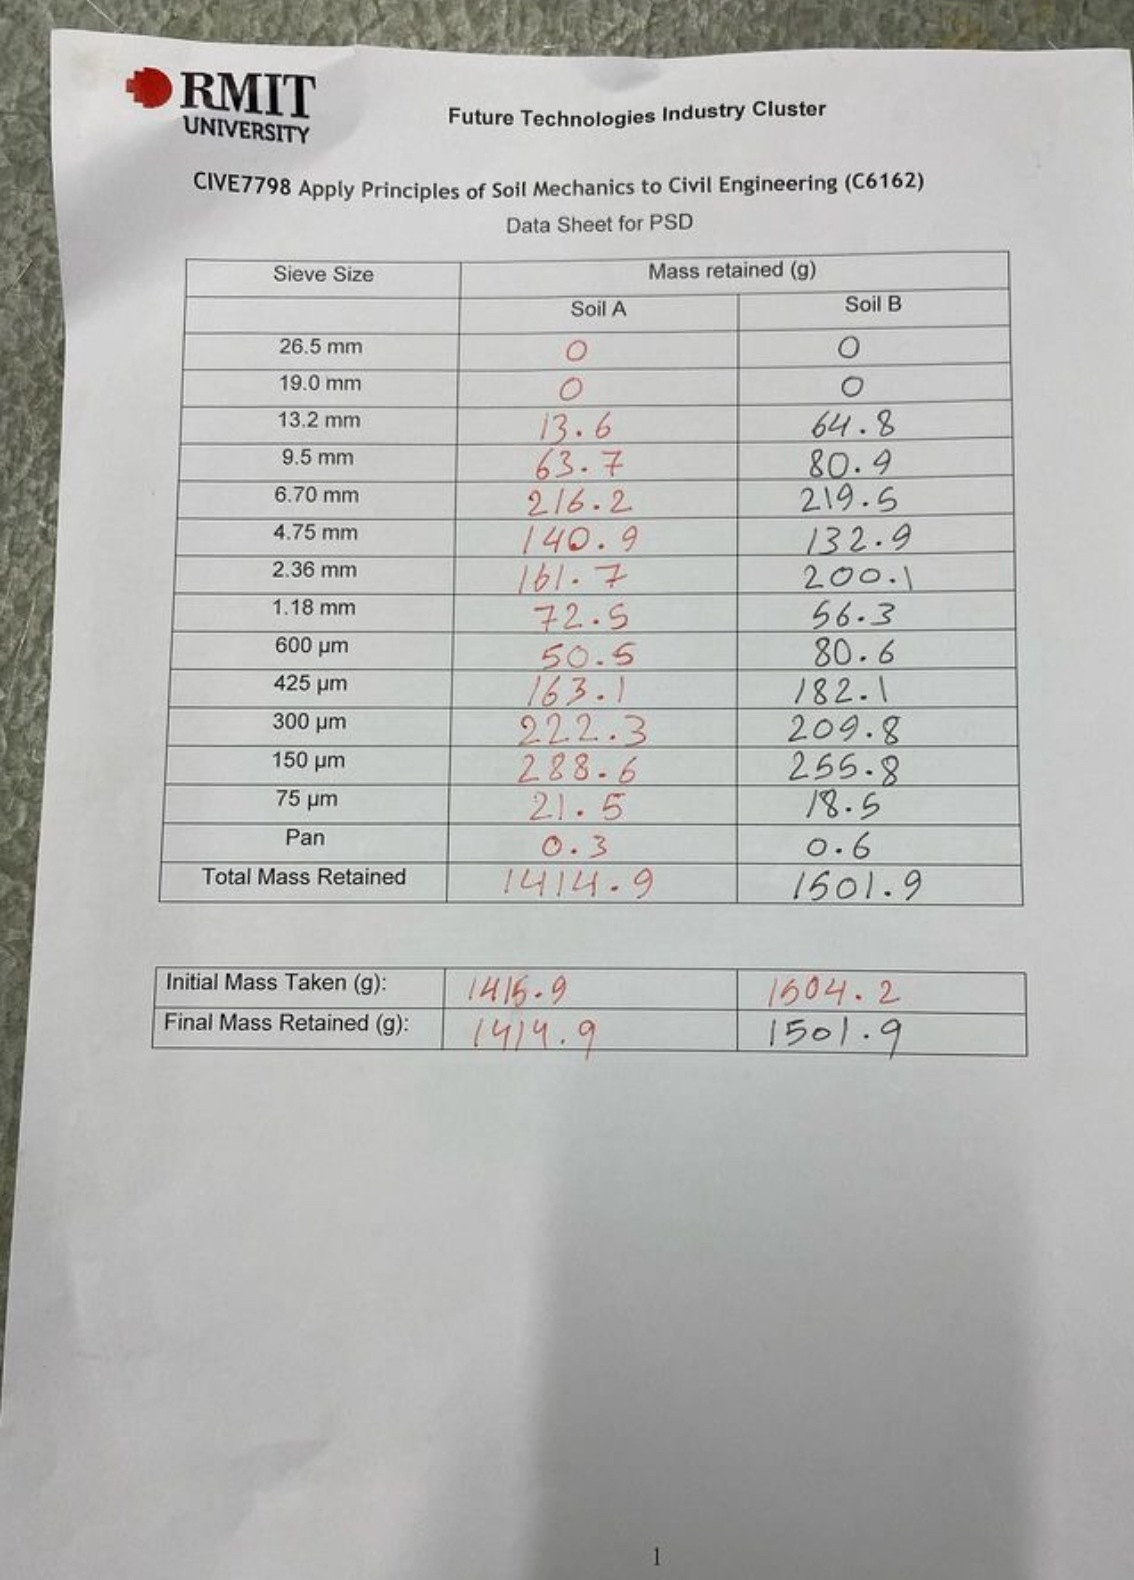 RMIT
UNIVERSITY
Future Technologies Industry Cluster
CIVE7798 Apply Principles of Soil Mechanics to Civil Engineering (C6162)
Data Sheet for PSD
Sieve Size Mass retained (g)
Soil A Soil B
26.5 mm 0 0
19.0 mm 0 0
13.2 mm 13.6 64.8
9.5 mm 63.7 80.9
6.70 mm 216.2 219.5
4.75 mm 140.9 132.9
2.36 mm 161.7 200.1
1.18 mm 72.5 56.3
600 µm 50.5 80.6
425 µm 163.1 182.1
300 µm 222.3 209.8
150 µm 288.6 255.8
75 µm 21.5 18.5
Pan 0.3 0.6
Total Mass Retained 1414.9 1501.9
Initial Mass Taken (g): 1415.9 1504.2
Final Mass Retained (g): 1414.9 1501.9
1